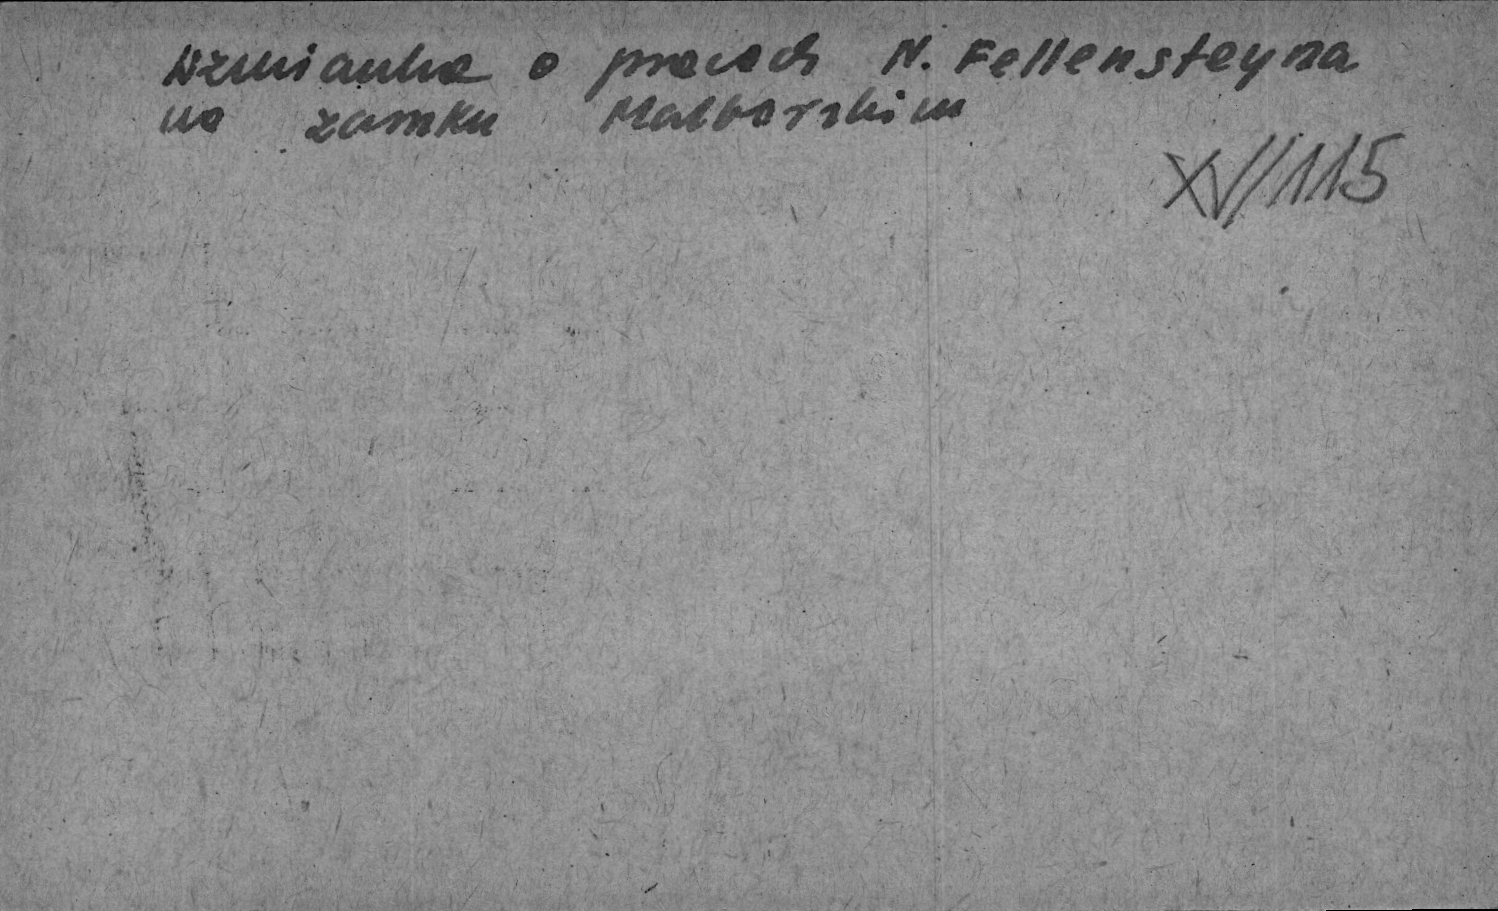 Wzmianka o pracach N. Fellensteyna
na zamku Malborskim
XV/115